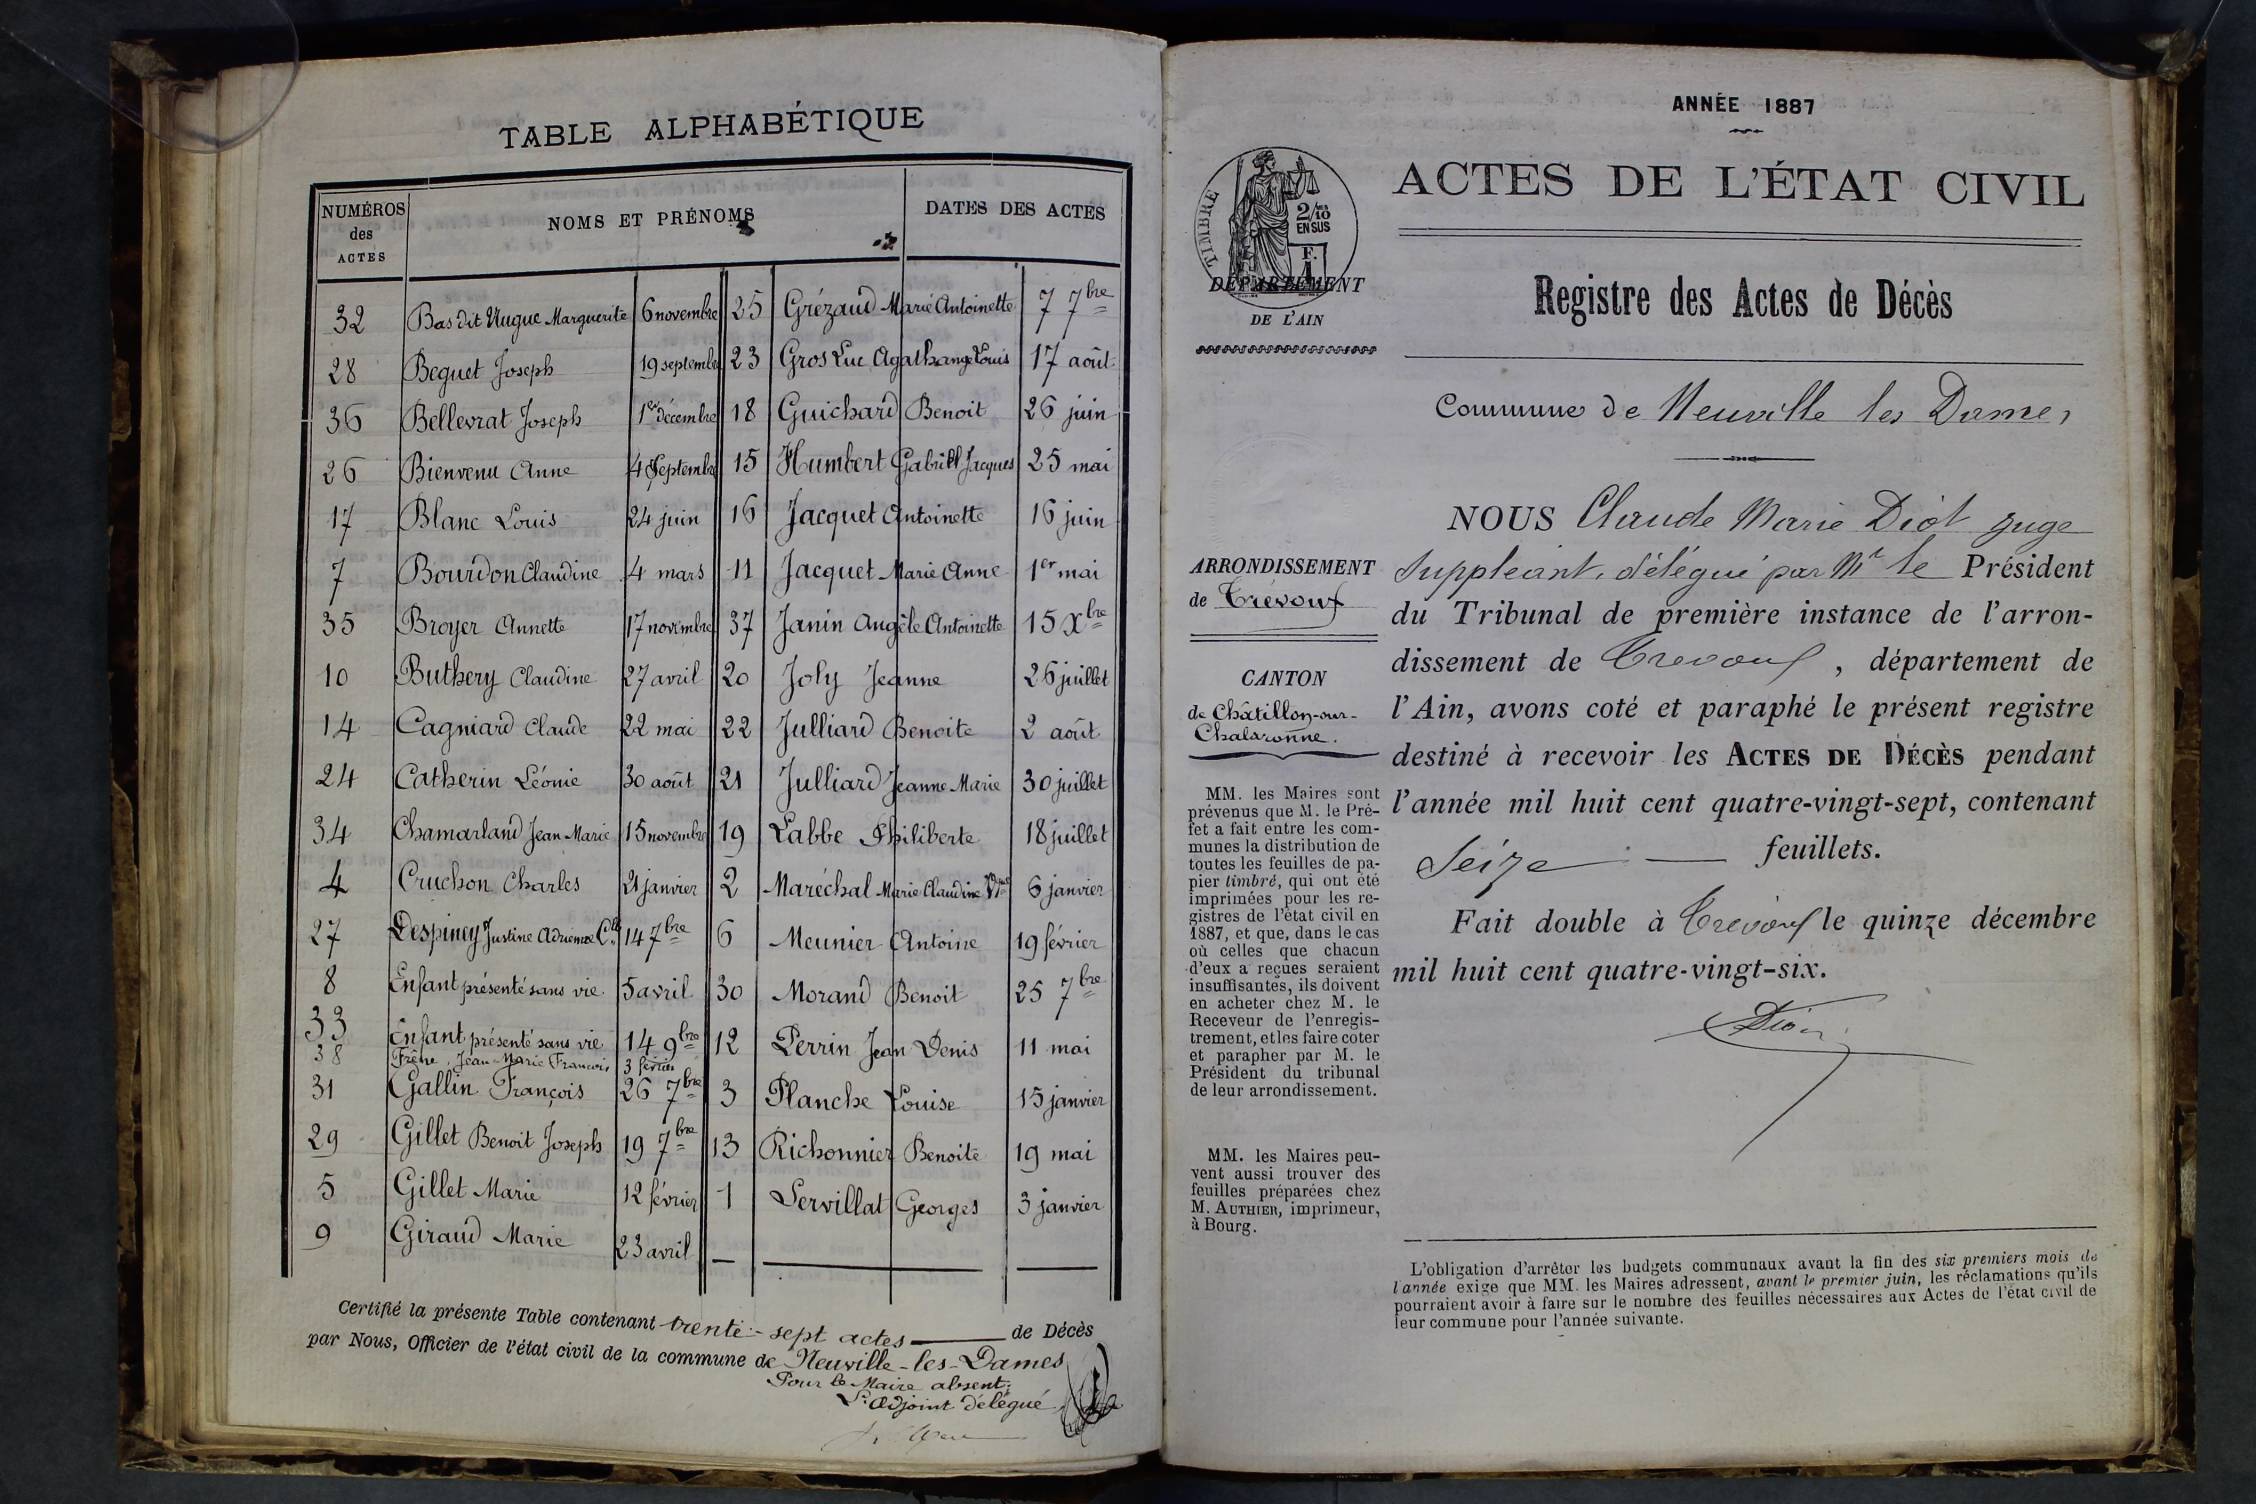 TABLE ALPHABÉTIQUE
NUMÉROS des ACTES
NOMS ET PRÉNOMS
DATES DES ACTES
32 Bas dit Nugue Marguerite 6 novembre
28 Beguet Joseph 19 septembre
36 Bellevrat Joseph 1er décembre
26 Bienvenu Anne 4 Septembre
17 Blanc Louis 24 juin
7 Bourdon Claudine 4 mars
35 Broyer Annette 17 novembre
10 Buthery Claudine 27 avril
14 Cagniard Claude 22 mai
24 Catherin Léonie 30 août
34 Chamarland Jean Marie 15 novembre
4 Cruchon Charles 21 janvier
27 Despiney Justine Adrienne 14 7bre
8 Enfant présenté sans vie 5 avril
33 Enfant présenté sans vie 14 9bre
38 Frêne, Jean Marie Francois 3 février
31 Gallin François 26 7bre
29 Gillet Benoit Joseph 19 7bre
5 Gillet Marie 12 février
9 Giraud Marie 23 avril
25 Grézaud Marie Antoinette 7 7bre
23 Gros Luc Agathange Louis 17 août
18 Guichard Benoit 26 juin
15 Humbert Gabriel Jacques 25 mai
16 Jacquet Antoinette 16 juin
11 Jacquet Marie Anne 1er mai
37 Janin Angèle Antoinette 15 Xbre
20 Joly Jeanne 26 juillet
22 Julliard Benoite 2 août
21 Julliard Jeanne Marie 30 juillet
19 Labbe Philiberte 18 juillet
2 Maréchal Marie Claudine 6 janvier
6 Meunier Antoine 19 février
30 Morand Benoit 25 7bre
12 Perrin Jean Denis 11 mai
3 Planche Louise 15 janvier
13 Richonnier Benoite 19 mai
1 Servillat Georges 3 janvier
Certifié la présente Table contenant trente-sept actes de Décès
par Nous, Officier de l'état civil de la commune de Neuville-les-Dames
Pour le Maire absent:
L'adjoint délégué
ANNÉE 1887
TIMBRE
2/10es
EN SUS
F.
1
DÉPARTEMENT
DE L'AIN
ACTES DE L'ÉTAT CIVIL
Registre des Actes de Décès
Commune de Neuville les Dames
ARRONDISSEMENT
de Trévoux
CANTON
de Châtillon-sur-
Chalaronne.
MM. les Maires sont
prévenus que M. le Pré-
fet a fait entre les com-
munes la distribution de
toutes les feuilles de pa-
pier timbré, qui ont été
imprimées pour les re-
gistres de l'état civil en
1887, et que, dans le cas
où celles que chacun
d'eux a reçues seraient
insuffisantes, ils doivent
en acheter chez M. le
Receveur de l'enregis-
trement, et les faire coter
et parapher par M. le
Président du tribunal
de leur arrondissement.
MM. les Maires peu-
vent aussi trouver des
feuilles préparées chez
M. AUTHIER, imprimeur,
à Bourg.
NOUS Claude Marie Diot juge
Suppléant, délégué par Mr le Président
du Tribunal de première instance de l'arron-
dissement de Trevoux, département de
l'Ain, avons coté et paraphé le présent registre
destiné à recevoir les ACTES DE DÉCÈS pendant
l'année mil huit cent quatre-vingt-sept, contenant
Seize feuillets.
Fait double à Trevoux le quinze décembre
mil huit cent quatre-vingt-six.
Diot
L'obligation d'arrêter les budgets communaux avant la fin des six premiers mois de
l'année exige que MM. les Maires adressent, avant le premier juin, les réclamations qu'ils
pourraient avoir à faire sur le nombre des feuilles nécessaires aux Actes de l'état civil de
leur commune pour l'année suivante.